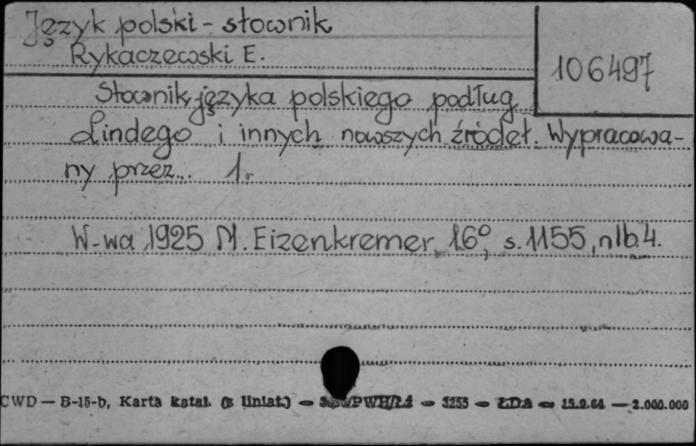 Język polski - słownik
Rykaczewski E.
106497
Słownik języka polskiego podług
Lindego i innych nowszych źródeł. Wypracowa-
ny przez... 1.
W-wa 1925 M. Eizenkremer, 16°, s. 1155, nlb. 4.
CWD — B-15-b, Karta katal. (z liniat.) — — 3255 — ŁDA — 15.9.64 — 2.000.000